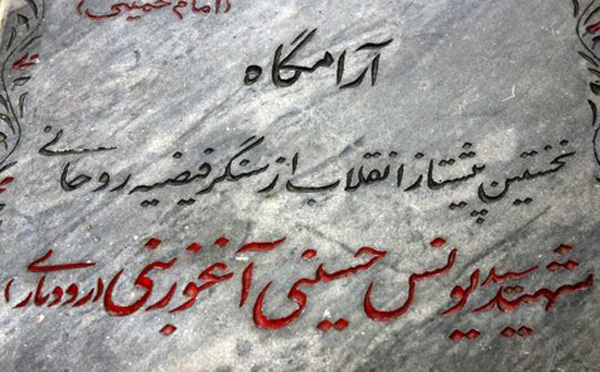 (امام خمینی)
آرامگاه
نخستین پیشتاز انقلاب از سنگر فیضیه روحانی
شهید سید یونس حسینی آغوزبنی (رودباری)